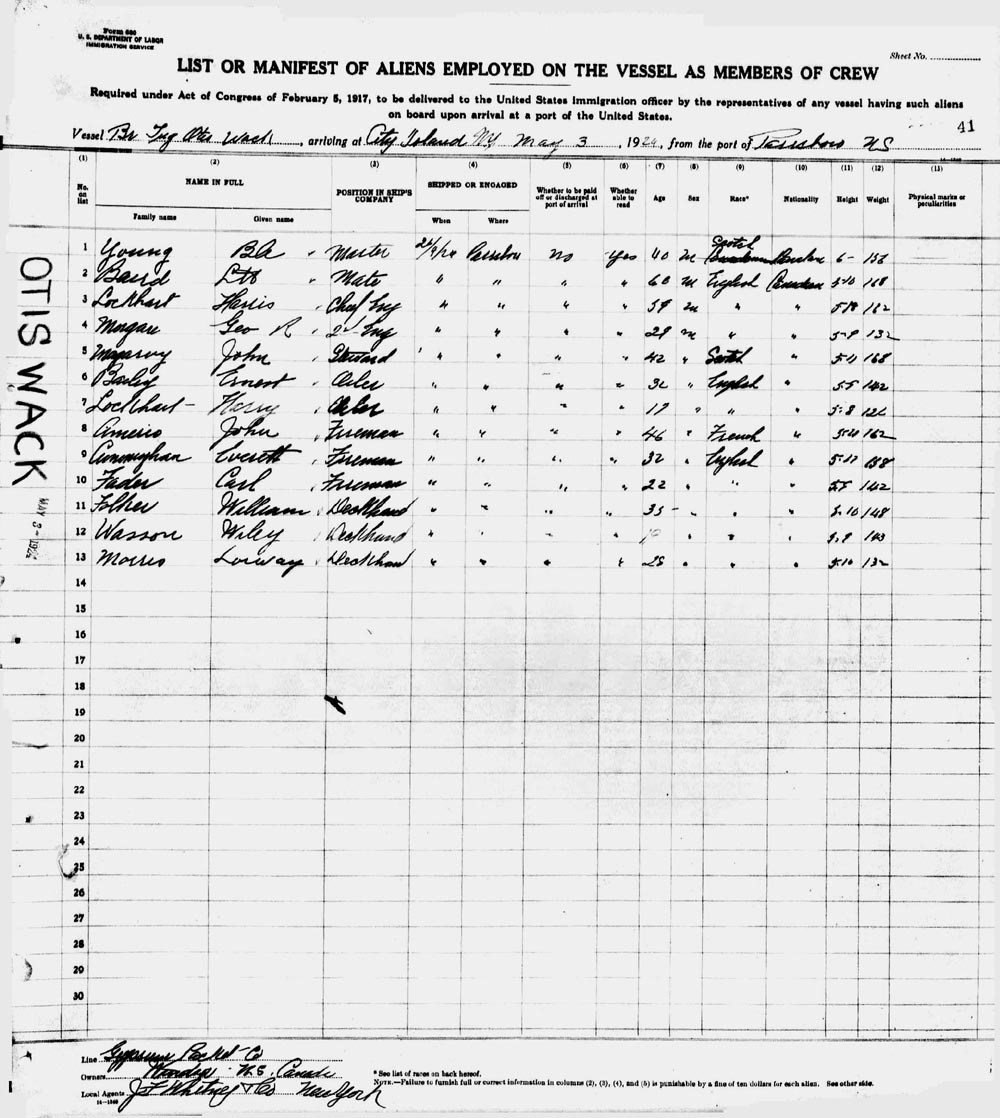 Form 680
U. S. DEPARTMENT OF LABOR
IMMIGRATION SERVICE
Sheet No.
LIST OR MANIFEST OF ALIENS EMPLOYED ON THE VESSEL AS MEMBERS OF CREW
Required under Act of Congress of February 5, 1917, to be delivered to the United States Immigration officer by the representatives of any vessel having such aliens
on board upon arrival at a port of the United States.
41
Vessel Br Tug Otis Wack, arriving at City Island NY May 3, 1924, from the port of Parrsboro NS
(1) (2) (3) (4) (5) (6) (7) (8) (9) (10) (11) (12) (13)
No. on list NAME IN FULL POSITION IN SHIP'S COMPANY SHIPPED OR ENGAGED Whether to be paid off or discharged at port of arrival Whether able to read Age Sex Race* Nationality Height Weight Physical marks or peculiarities
Family name Given name When Where
1 Young Master Parrsboro No Yes 40 M Scotch 6-
2 Baird Mate " " " " 60 M English Canadian 5-10 168
3 Lockhart Harris Chief Eng " " " " 59 M " " 162
4 Geo R 2nd Eng " " " " 29 M " " 5-9 132
5 John Steward " " " " 42 " Scotch " 5-11 168
6 Ernest Oiler " " " " 32 " English " 5-5 142
7 Lockhart Harry Oiler " " " " " " " 5-8
8 John Fireman " " " " 46 " French " 162
9 Cunninghan Everett Fireman " " " " 32 " English " 158
10 Fader Carl Fireman " " " " 22 " " " 142
11 William Deckhand " " " " 35 " " " 5-10 148
12 Wasson Wiley Deckhand " " " " " " "
13 Morris Deckhand " " " " 28 " " " 5-10 132
14
15
16
17
18
19
20
21
22
23
24
25
26
27
28
29
30
OTIS WACK
MAY 3-1924
Line Gypsum Packet Co
Owners Windsor N.S. Canada
Local Agents J F Whitney & Co New York
* See list of races on back hereof.
NOTE.—Failure to furnish full or correct information in columns (2), (3), (4), and (5) is punishable by a fine of ten dollars for each alien. See other side.